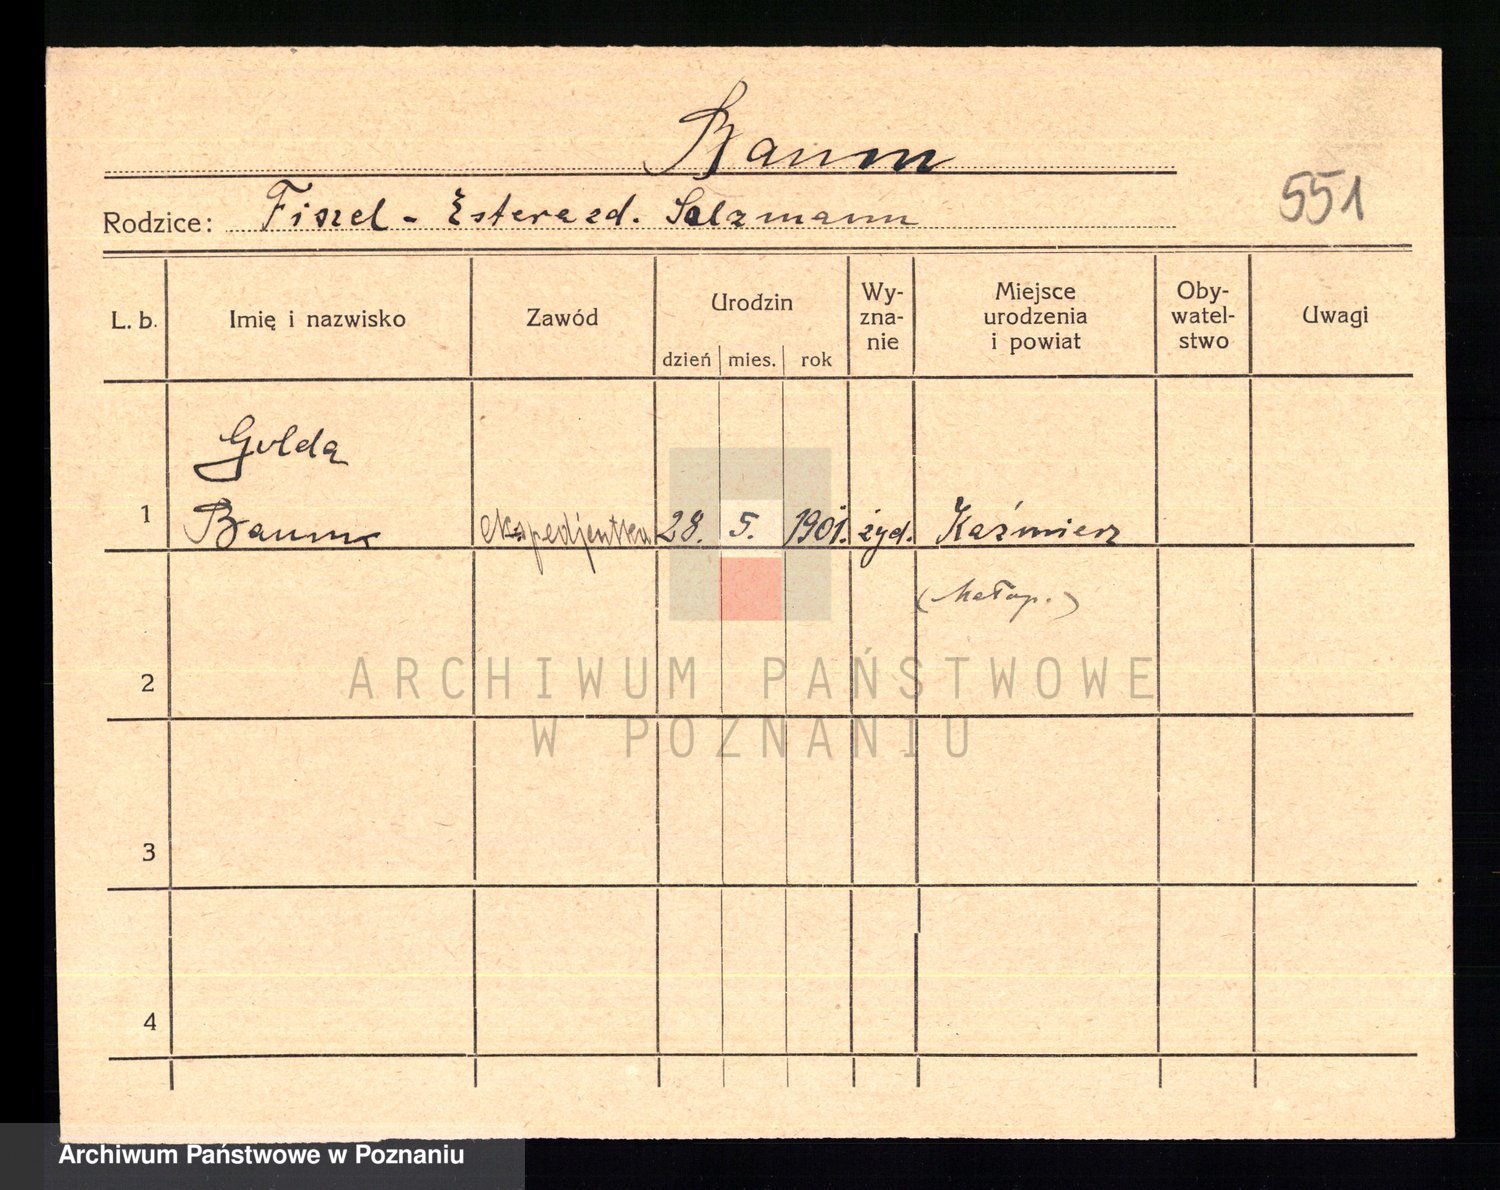 Baum
551
Rodzice: Fiszel - Estera zd. Salzmann
L. b.
Imię i nazwisko
Zawód
Urodzin
dzień mies. rok
Wy-
zna-
nie
Miejsce
urodzenia
i powiat
Oby-
watel-
stwo
Uwagi
Golda
1 Baum ekspedjentka 28. 5. 1901. żyd. Kaźmierz
(Małop.)
2
3
4
ARCHIWUM PAŃSTWOWE
W POZNANIU
Archiwum Państwowe w Poznaniu